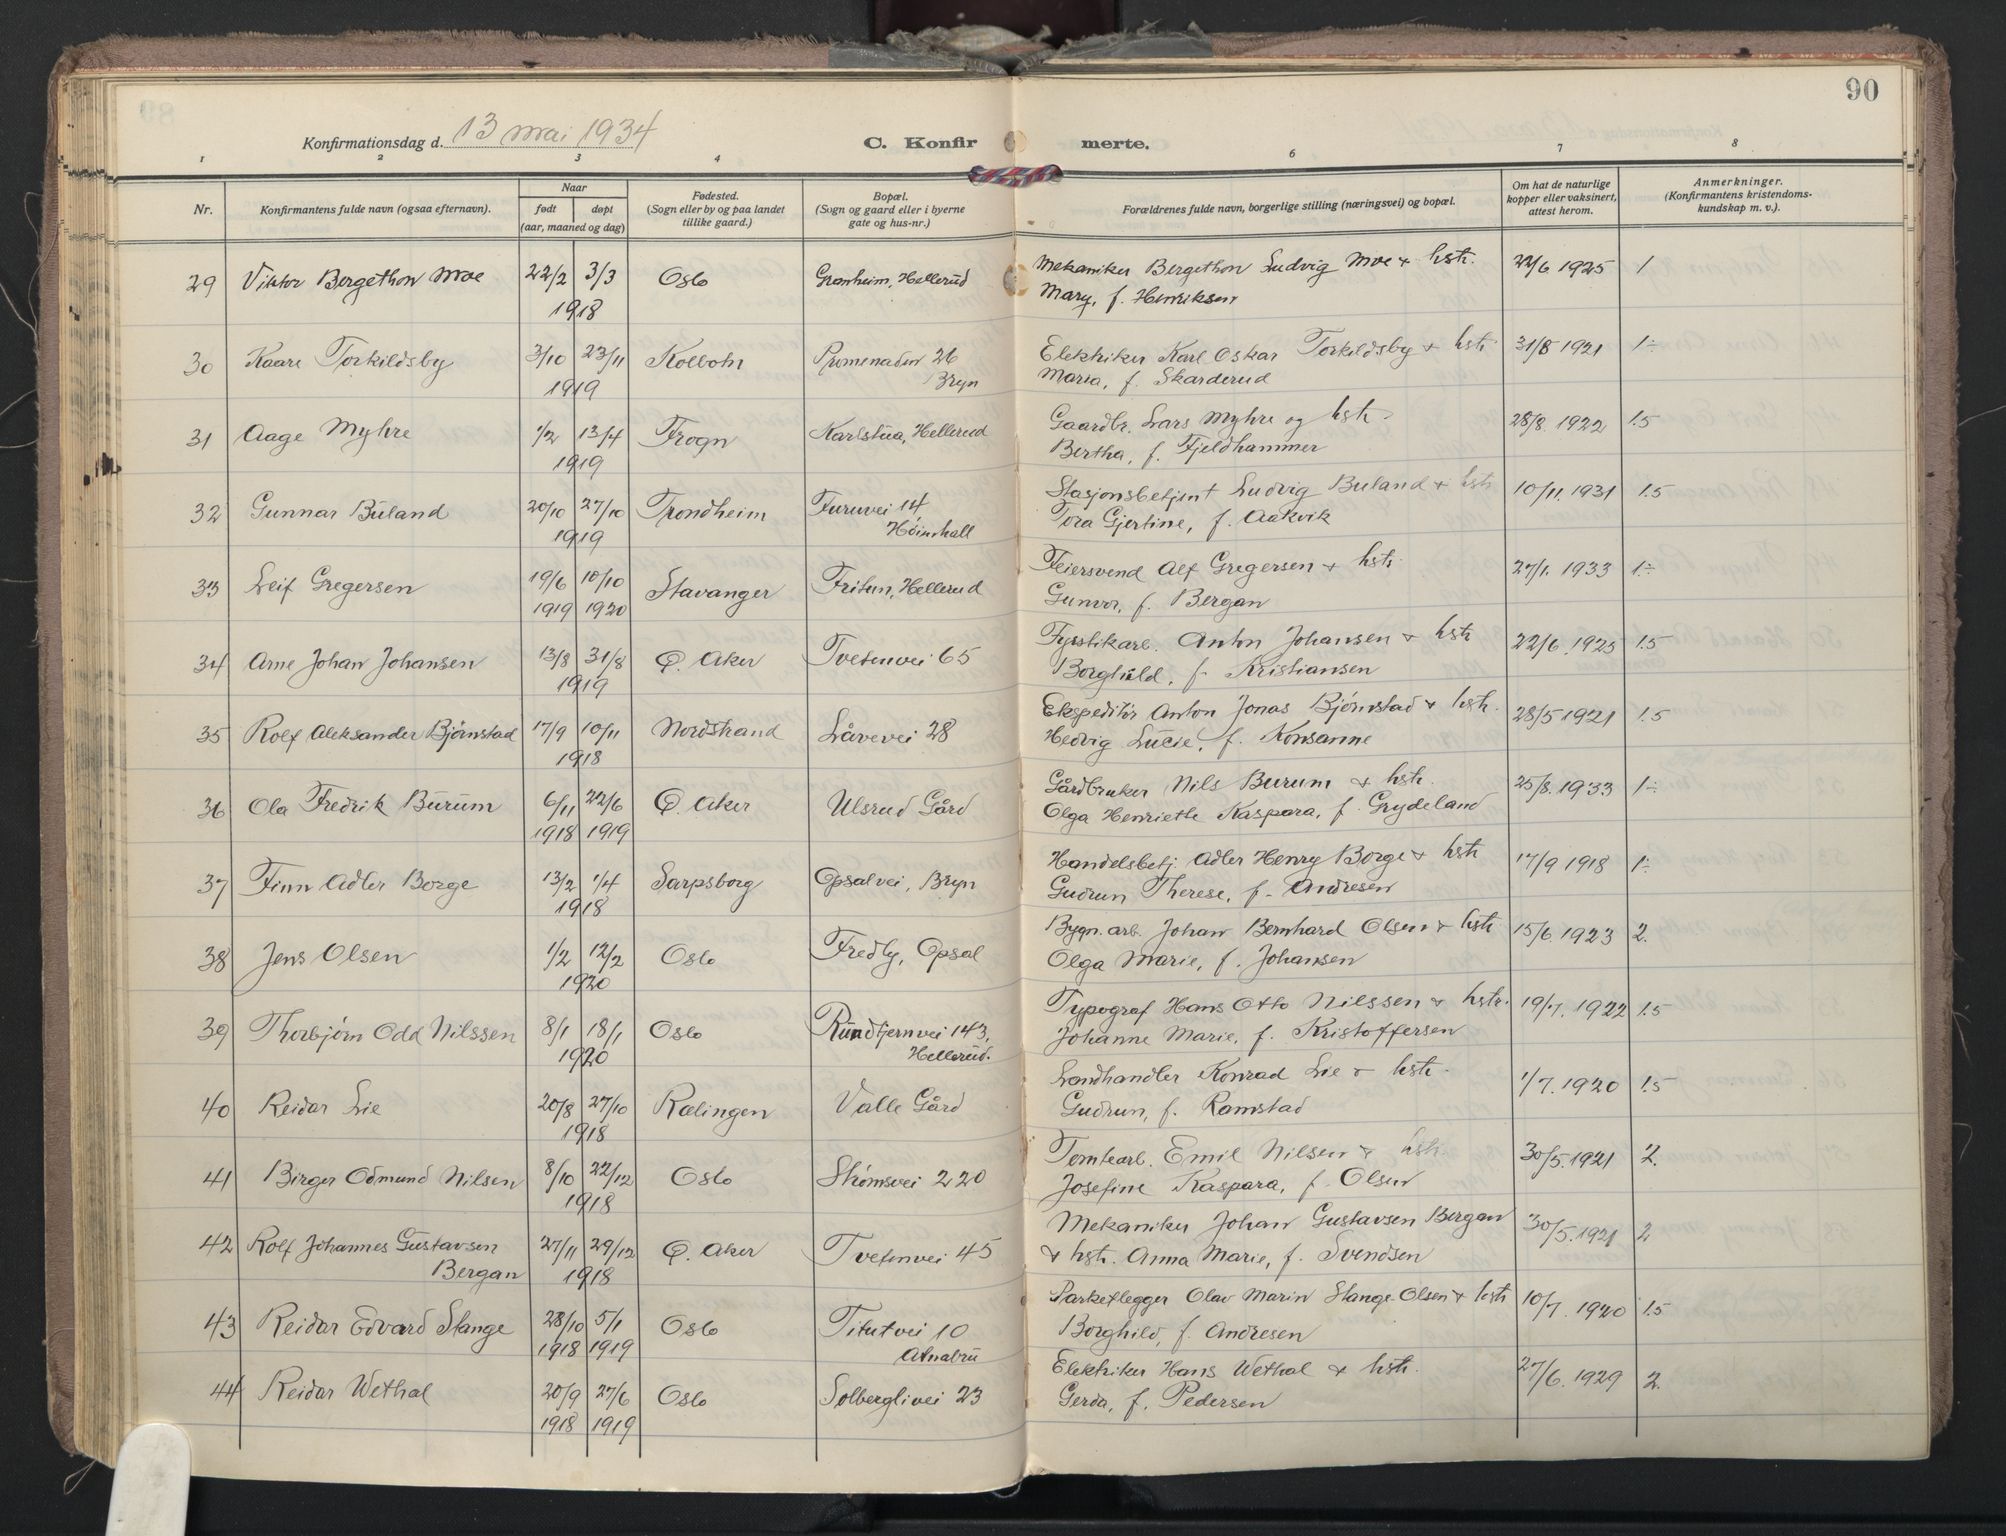 90
Konfirmationsdag d. 13 mai 1934
C. Konfirmerte.
1 2 3 4 5 6 7 8
Nr.
Konfirmantens fulde navn (ogsaa efternavn).
Naar
født døpt
(aar, maaned og dag)
Fødested.
(Sogn eller by og paa landet
tillike gaard.)
Bopæl.
(Sogn og gaard eller i byerne
gate og hus-nr.)
Forældrenes fulde navn, borgerlige stilling (næringsvei) og bopæl.
Om hat de naturlige
kopper eller vaksinert,
attest herom.
Anmerkninger.
(Konfirmantens kristendoms-
kundskap m. v.).
29 Viktor Bergethon Moe 22/2 3/3 Oslo Granheim, Hellerud Mekaniker Bergethon Ludvig Moe + hstr. 22/6 1925 1
1918 Mary, f. Henriksen
30 Kaare Torkildsby 3/10 23/11 Kolbotn Promenaden 26 Elektriker Karl Oskar Torkildsby + hstr. 31/8 1921 1÷
1919 Bryn Maria, f. Skarderud
31 Aage Myhre 1/2 13/4 Frogn Karlstua, Hellerud Gaardbr. Lars Myhre og hstr. 28/8. 1922 1.5
1919 Bertha, f. Fjeldhammer
32 Gunnar Buland 20/10 27/10 Trondheim Furuvei 14 Stasjonsbetjent Ludvig Buland + hstr. 10/11. 1931 1.5
1919 Høinhall Tora Gjertine, f. Aakvik
33 Leif Gregersen 19/6 10/10 Stavanger Fritun, Hellerud Feiersvend Alf Gregersen + hstr. 27/1. 1933 1÷
1919 1920 Gunvor, f. Bergan
34 Arne Johan Johansen 13/8 31/8 Ø. Aker Tvetenvei 65 Fyrstikarb. Anton Johansen + hstr 22/6. 1925 1.5
1919 Borghild, f. Kristiansen
35 Rolf Aleksander Bjørnstad 17/9 10/11 Nordstrand Låvevei 28 Ekspeditør Anton Jonas Bjørnstad + hstr. 28/5 1921 1.5
1918 Hedvig Lucie, f. Konsanne
36 Ola Fredrik Burum 6/11 22/6 Ø. Aker Ulsrud Gård Gårdbruker Nils Burum + hstr. 25/8. 1933 1÷
1918 1919 Olga Henriette Kaspara, f. Grydeland
37 Finn Adler Borge 13/2 1/4 Sarpsborg Opsalvei, Bryn Handelsbetj. Adler Henry Borge + hstr 17/9 1918 1÷
1918 Gudrun Therese, f. Andresen
38 Jens Olsen 1/2 12/2 Oslo Fredly, Opsal Bygn. arb. Johan Bernhard Olsen + hstr. 15/6. 1923 2.
1920 Olga Marie, f. Johansen
39 Thorbjørn Odd Nilssen 8/1 18/1 Oslo Rundtjernvei 143, Typograf Hans Otto Nilssen + hstr. 19/7. 1922 1.5
1920 Hellerud. Johanne Marie, f. Kristoffersen
40 Reidar Lie 20/8 27/10 Rælingen Valle Gård Landhandler Konrad Lie + hstr. 1/7. 1920 1.5
1918 Gudrun, f. Ramstad
41 Birger Odmund Nilsen 8/10 22/12 Oslo Strømsvei 220 Tomtearb. Emil Nilsen + hstr. 30/5. 1921 2.
1918 Josefine Kaspara, f. Olsen
42 Rolf Johannes Gustavsen 27/11 29/12 Ø. Aker Tvetenvei 45 Mekaniker Johan Gustavsen Bergan 30/5. 1921 2
Bergan 1918 + hstr. Anna Marie, f. Svendsen
43 Reidar Edvard Stange 28/10 5/1 Oslo Titutvei 10 Parketlegger Olav Marin Stange Olsen + hstr 10/7. 1920 1.5
1918 1919 Alnabru Borghild, f. Andresen
44 Reidar Wethal 20/9 27/6 Oslo Solberglivei 23 Elektriker Hans Wethal + hstr. 27/6. 1929 2.
1918 1919 Gerda, f. Pedersen